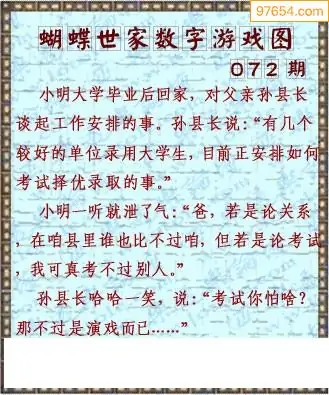 97654.com
蝴蝶世家数字游戏图
072 期
小明大学毕业后回家，对父亲孙县长
谈起工作安排的事。孙县长说：“有几个
较好的单位录用大学生，目前正安排如何
考试择优录取的事。”
小明一听就泄了气：“爸，若是论关系
，在咱县里谁也比不过咱，但若是论考试
，我可真考不过别人。”
孙县长哈哈一笑，说：“考试你怕啥？
那不过是演戏而已……”